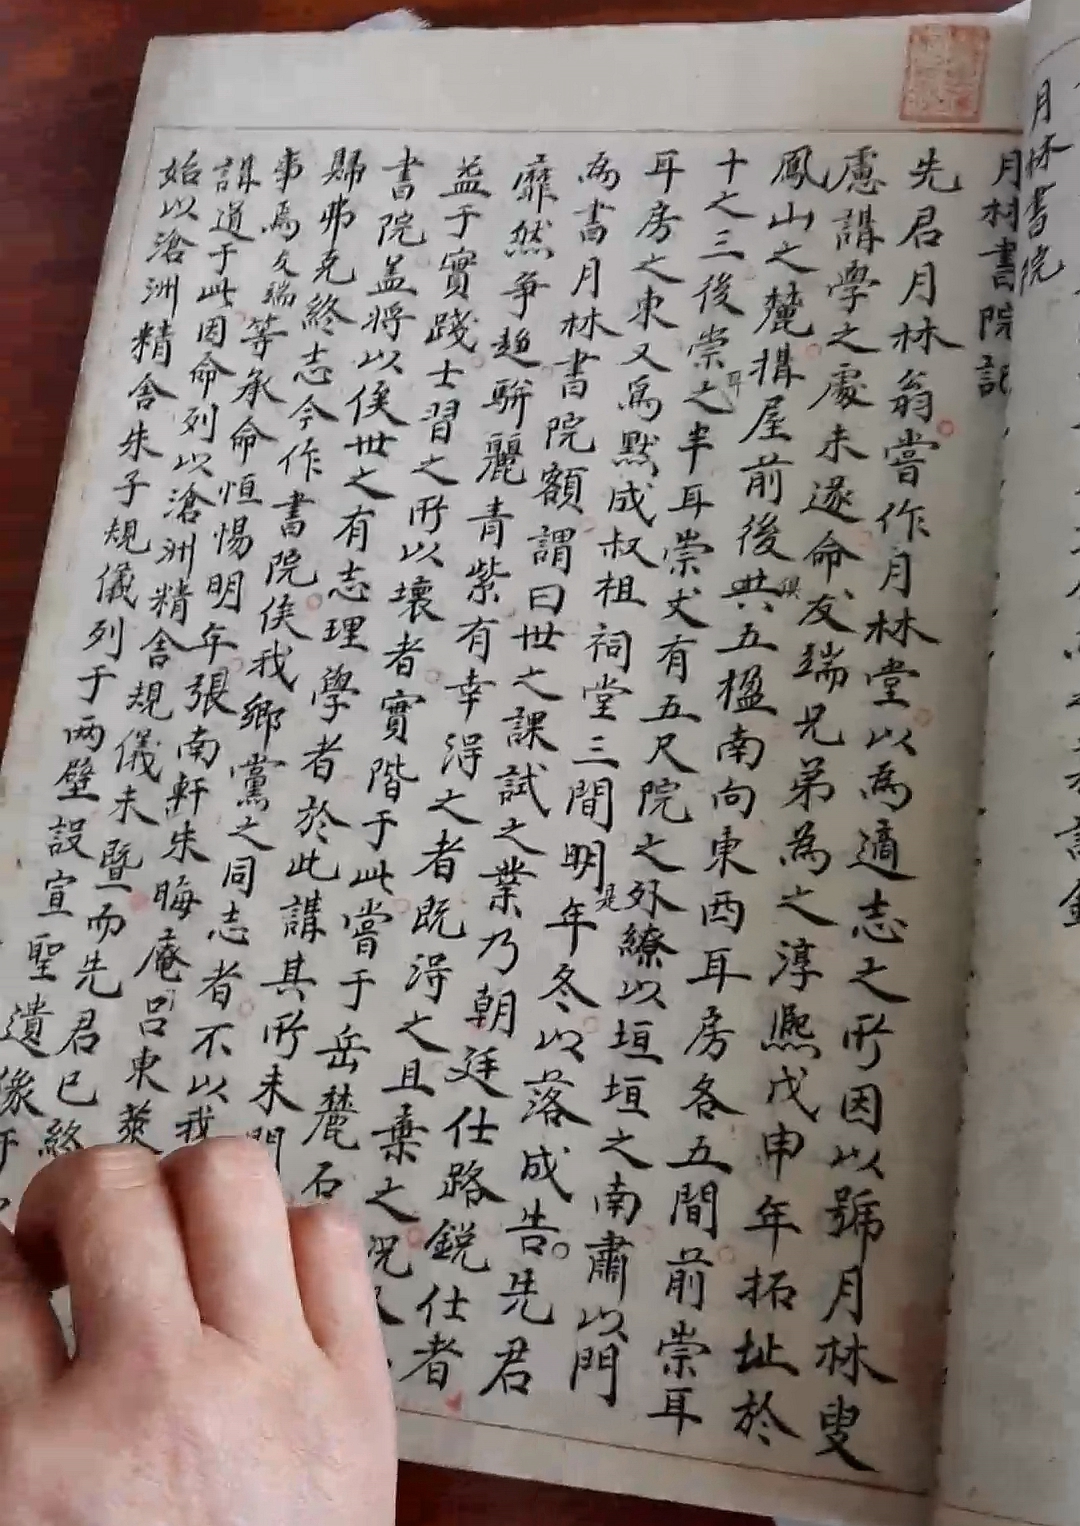 月林書院
月林書院記
先君月林翁嘗作月林堂以為適志之所因以號月林叟
慮講學之處未遂命友瑞兄弟為之淳熙戊申年拓址於
鳳山之麓搆屋前後共五楹南向東西耳房各五間前崇耳
十之三後崇之半耳崇丈有五尺院之外繚以垣垣之南肅以門
耳房之東又為默成叔祖祠堂三間明年冬以落成告先君
為書月林書院額謂曰世之課試之業乃朝廷仕路銳仕者
靡然爭趨駢麗青紫有幸得之者既得之且棄之況
益于實踐士習之所以壞者實階于此嘗于岳麓石
書院盖將以俟世之有志理學者於此講其所未
歸弗克終志今作書院俟我鄉黨之同志者不以我
事焉友瑞等承命恒惕明年張南軒朱晦庵呂東萊
講道于此因命列以滄洲精舍規儀未暨而先君已終
始以滄洲精舍朱子規儀列于两壁設宣聖遺像于